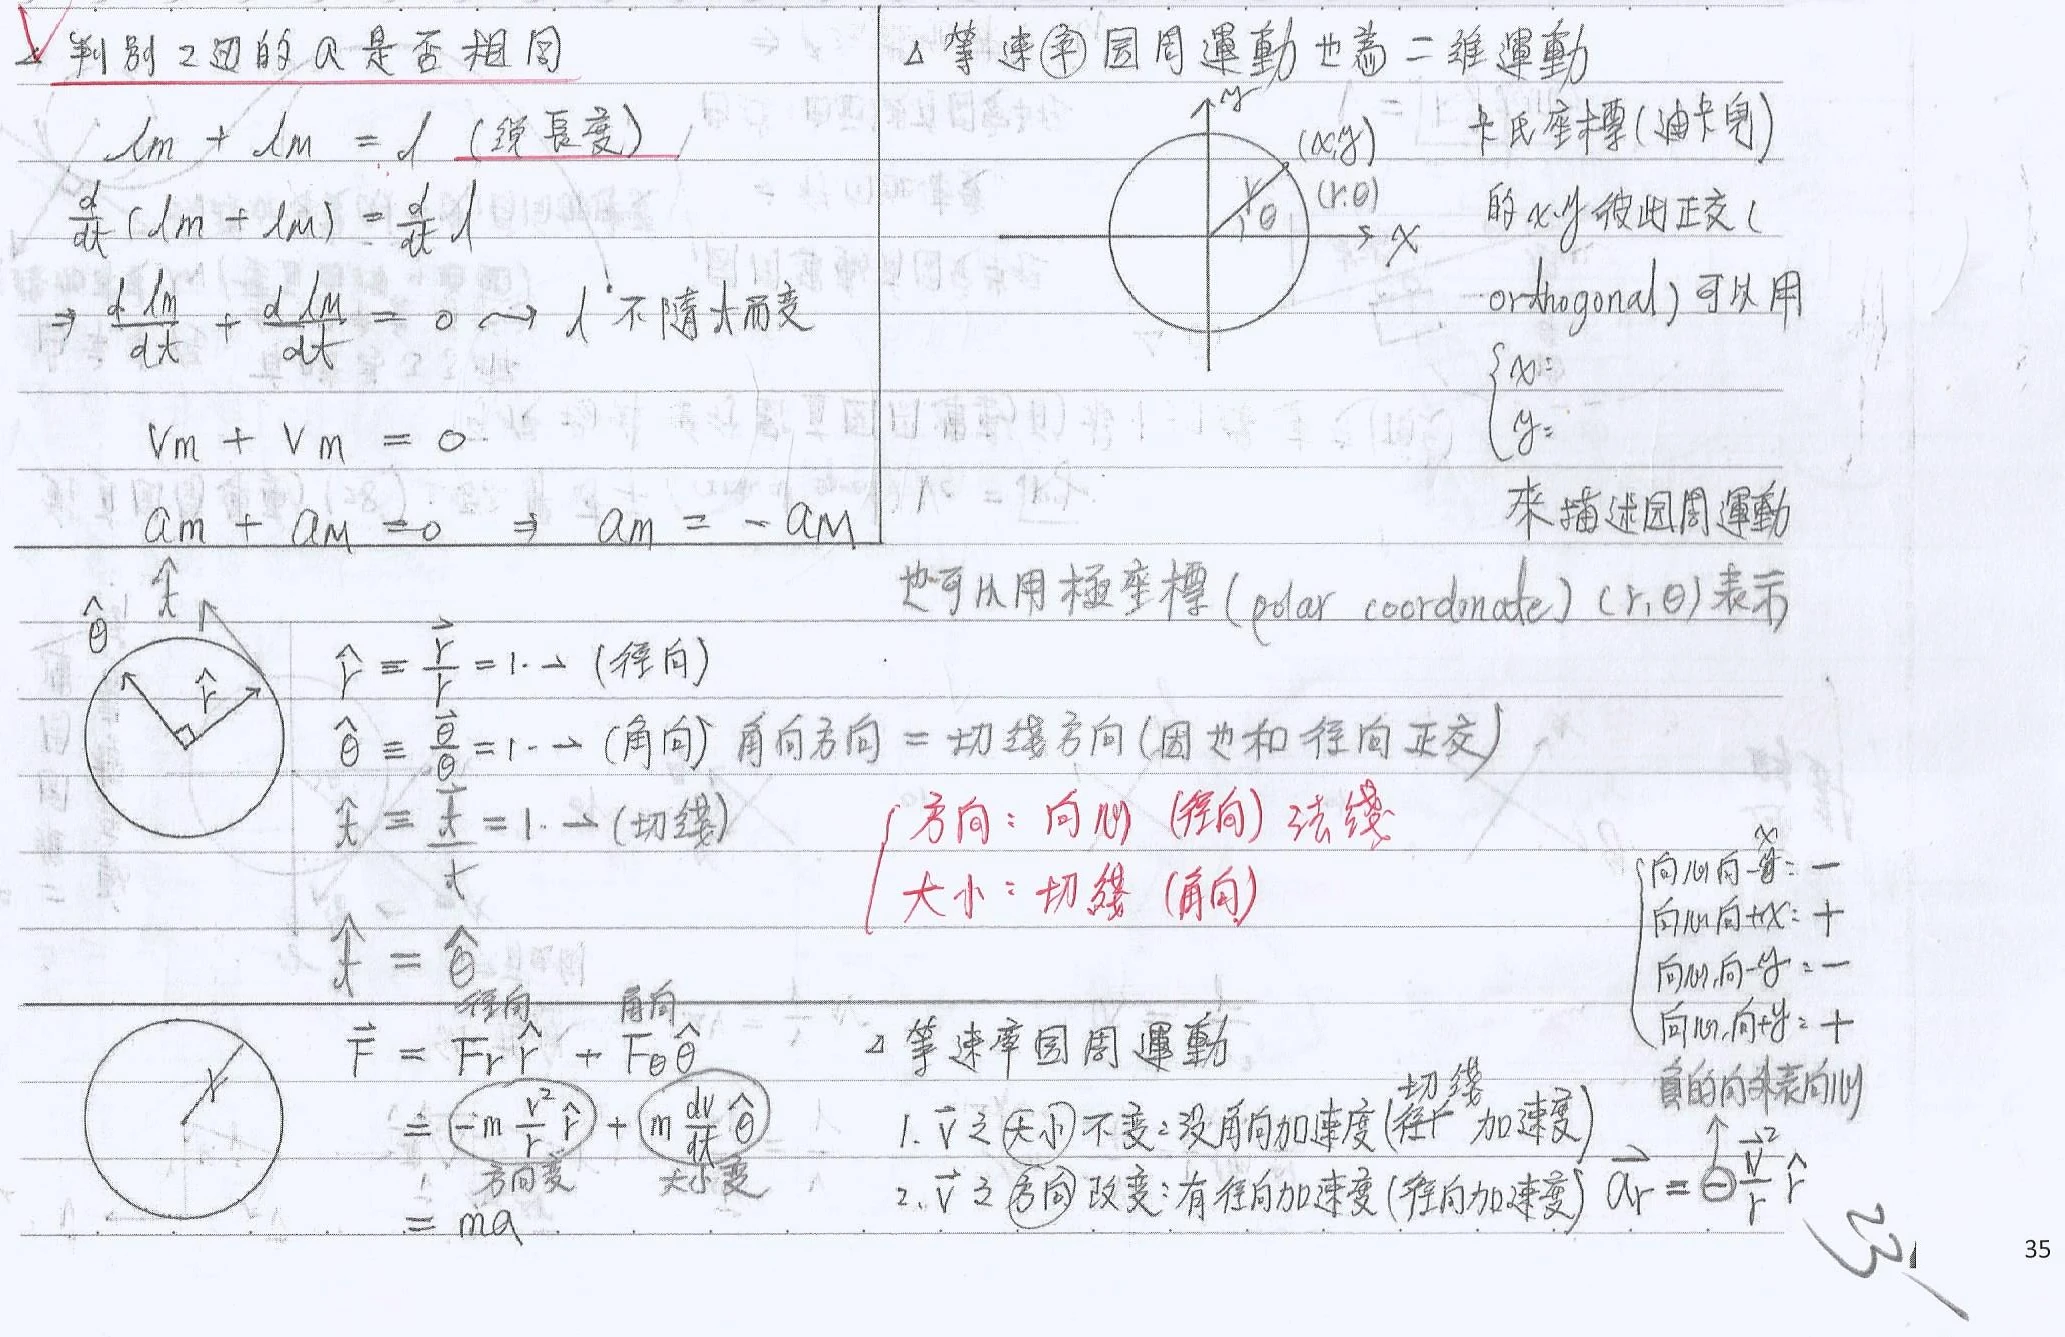 △ 判別2边的a是否相同
lm + lM = l (繩長度)
d/dt (lm + lM) = d/dt l
⇒ d lm/dt + d lM/dt = 0 ⤳ l 不隨t而变
Vm + Vm = 0
am + aM = 0 ⇒ am = - aM
△ 等速率圆周運動也為二維運動
y
(x,y)
(r.θ)
r
θ
x
卡氏座標(迪卡兒)
的x.y彼此正交(
orthogonal)可以用
{ x=
y=
來描述圆周運動
也可以用極座標(polar coordonate)(r,θ)表示
t̂
θ̂
r̂
r̂ ≡ r⃗/r = 1.→ (徑向)
θ̂ ≡ θ⃗/θ = 1.→ (角向) 角向方向 = 切綫方向(因也和徑向正交)
t̂ ≡ t⃗/t = 1.→ (切綫)
t̂ = θ̂
{ 方向：向心 (徑向) 法綫
大小：切綫 (角向)
{ 向心向-x：−
向心向+x：+
向心向-y：−
向心向+y：+
負的向外表向心
r
徑向 角向
F⃗ = Fr r̂ + Fθ θ̂
= -m v²/r r̂ + m dv/dt θ̂
方向变 大小变
= ma
△ 等速率圆周運動
切綫
1. v⃗之大小不变：沒角向加速度( 加速度)
2. v⃗之方向改变：有徑向加速度(徑向加速度) a⃗r = ⊖ v⃗²/r r̂
23
35